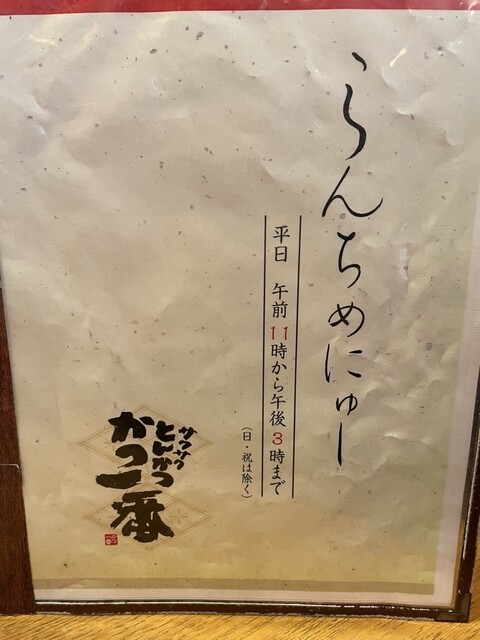 らんちめにゅー
平日 午前11時から午後3時まで
(日・祝は除く)
サクサク
とんかつ
かつ一番